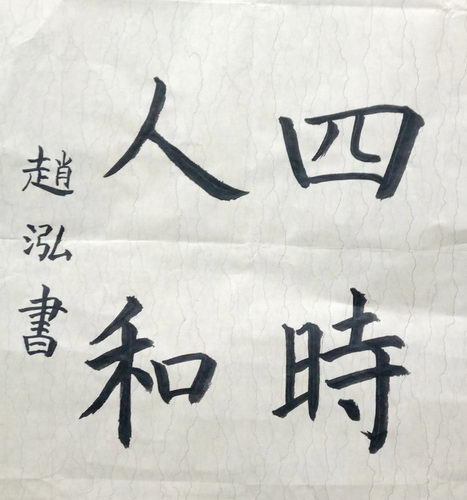 四時
人和
趙泓書